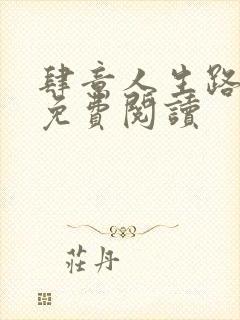 肆意人生路
免費閱讀
莊丹